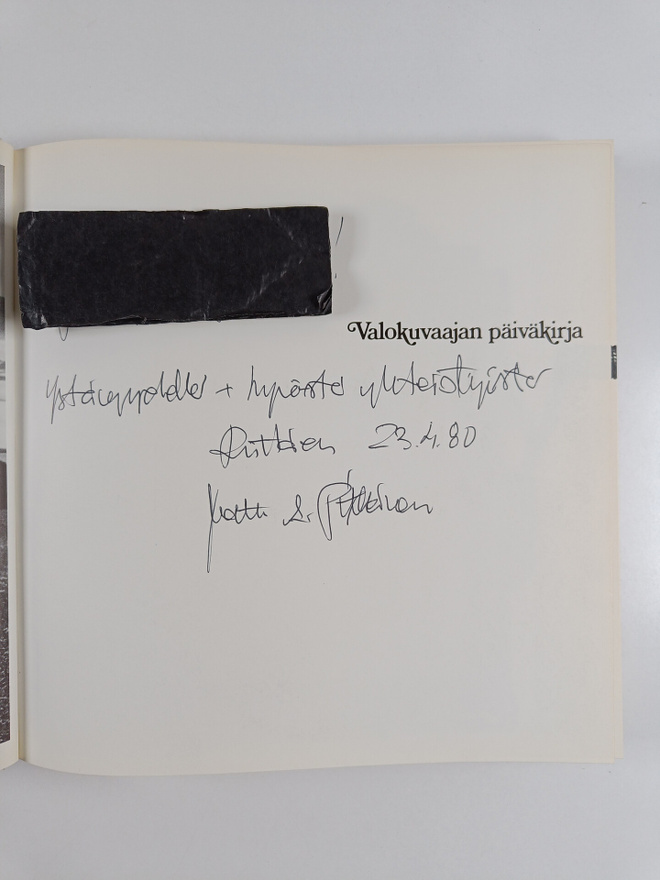 Valokuvaajan päiväkirja
ystävyydellä + hyvästä yhteistyöstä
Kiittäen 23.4.80
Matti A. Pitkänen